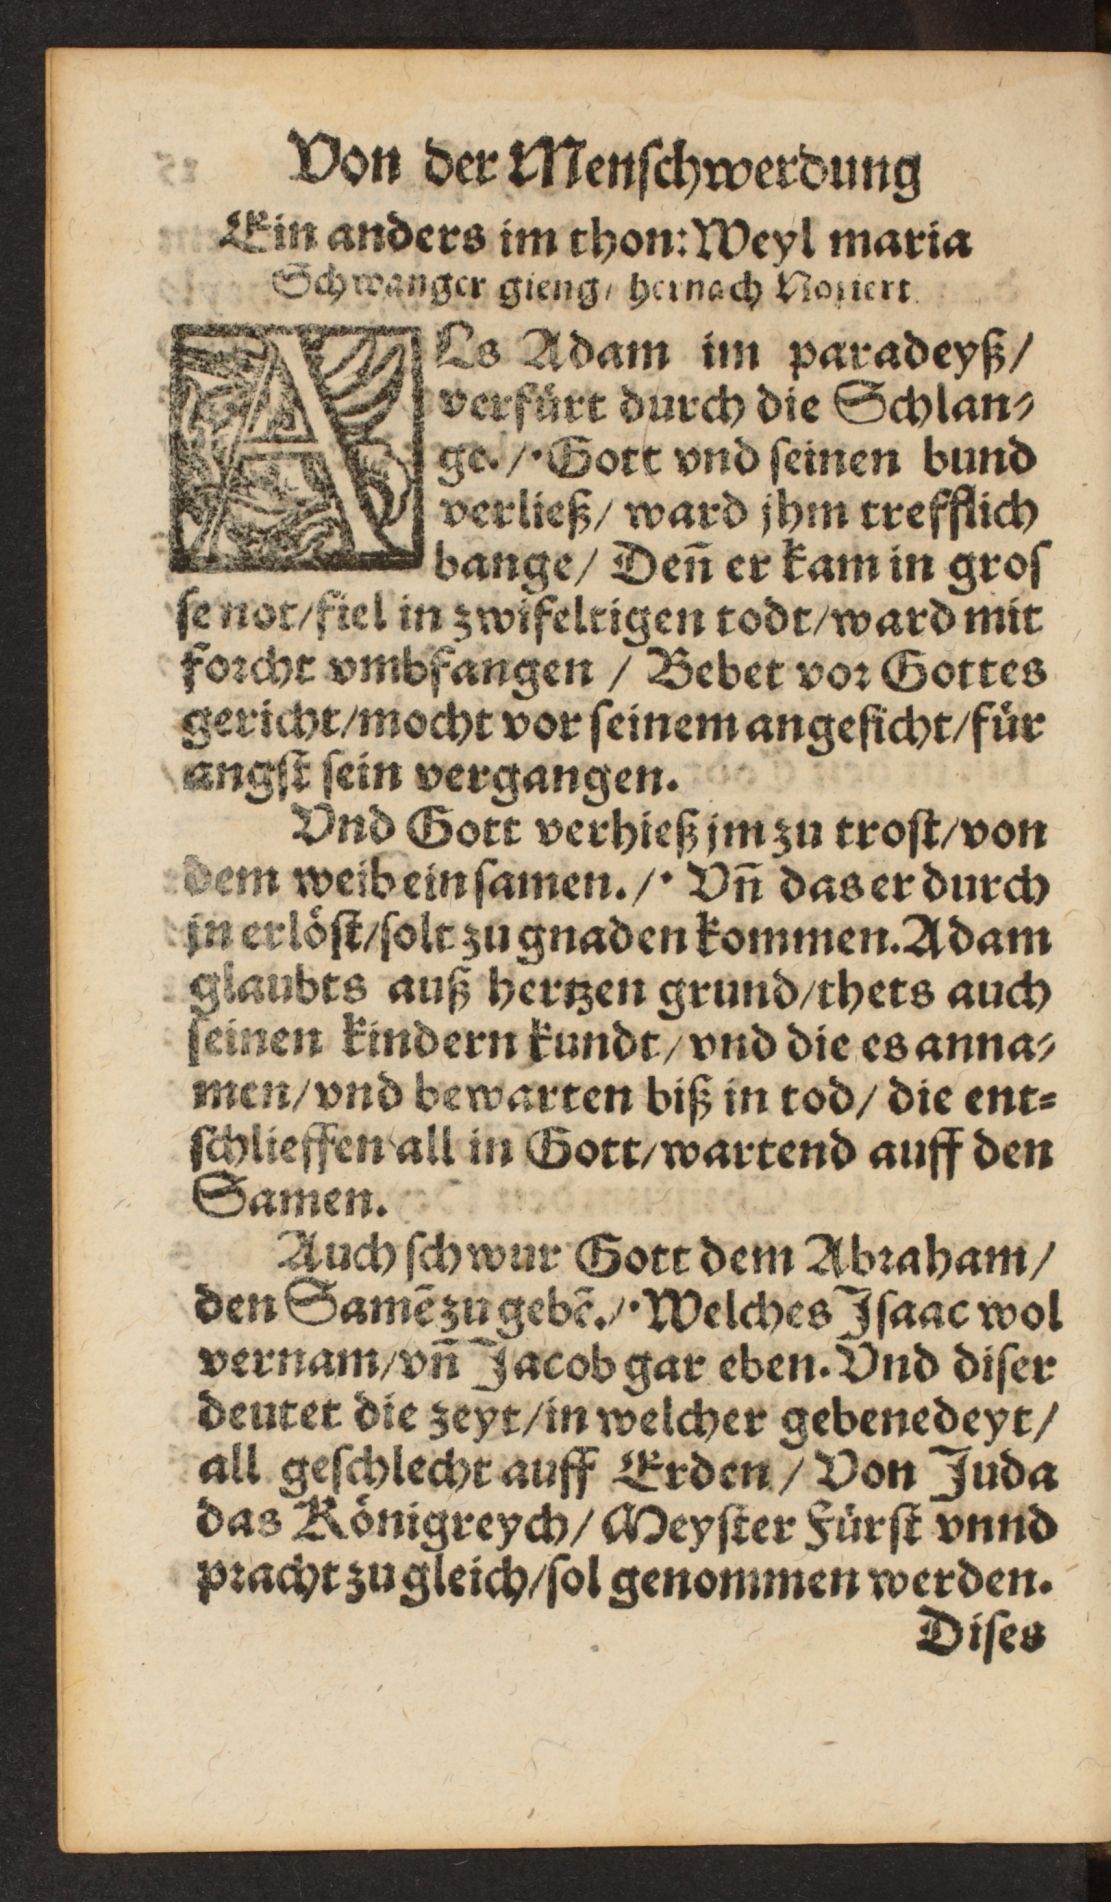 Von der Menſchwerdung
Ein anders im thon: Weyl maria
Schwanger gieng, hernach Notiert
ALs Adam im paradeyß/
verfürt durch die Schlan⸗
ge./· Gott vnd ſeinen bund
verließ/ ward jhm trefflich
bange/ Deñ er kam in groſ
ſe not/fiel in zwifeltigen todt/ward mit
forcht vmbfangen / Bebet vor Gottes
gericht/mocht vor ſeinem angeſicht/für
angſt ſein vergangen.
Vnd Gott verhieß jm zu troſt/von
dem weib ein ſamen./· Vñ das er durch
jn erlöſt/ſolt zu gnaden kommen. Adam
glaubts auß hertzen grund/thets auch
ſeinen kindern kundt/vnd die es anna⸗
men/vnd bewarten biß in tod/ die ent⸗
ſchlieffen all in Gott/wartend auff den
Samen.
Auch ſchwur Gott dem Abraham/
den Samẽ zu gebẽ./· Welches Iſaac wol
vernam/vñ Jacob gar eben. Vnd diſer
deutet die zeyt/in welcher gebenedeyt/
all geſchlecht auff Erden / Von Juda
das Königreych/ Meyſter Fürſt vnnd
pracht zu gleich/ſol genommen werden.
Diſes